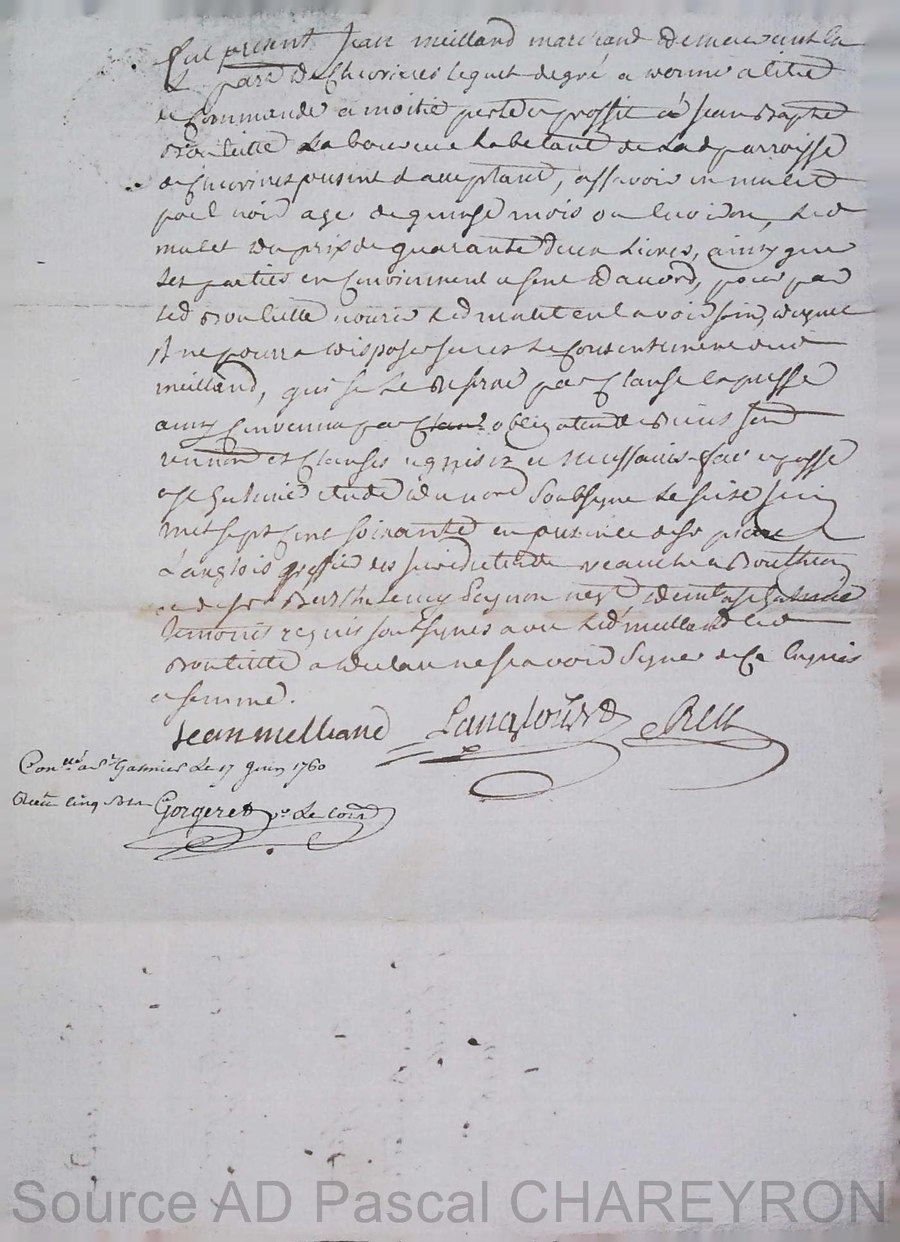 fut présent Jean meilland marchand demeurant en
la parr de Chevrieres lequel de gré a donné a titre
de Commande a moitié perte et proffit a Jean Baptte
habitant de lad parroisse
de Chevrieres present et acceptant, assavoir un mulet
poil noir age de quinse mois ou environ, led
mulet du prix de quarante deux Livres, ainsy que
les parties en Conviennent et sont d'acord, pour par
led nourir led mulet en avoir soin, duquel
il ne pourra disposer sans le Consentement dud
meilland, qui se le reserve par Clause expresse
ainsy Convenu par obligation de Biens
renon et Clauses requises et necessaires fait et passé
a St Galmier etude du nore Soubsigné le seise juin
mil sept cent soixante en presence de Sr pierre
Langlois greffier des juridictions de veauche et Bouthéon
et de Sr Barthelemy Peyron demt a St Galmier
temoins requis soubsignés avec led meilland led
a déclaré ne sçavoir signer de Ce enquis
et sommé.
Jean meilland Langlois
Con a St Galmier Le 17 juin 1760
Reçu cinq sols Gorgeret
Source AD Pascal CHAREYRON